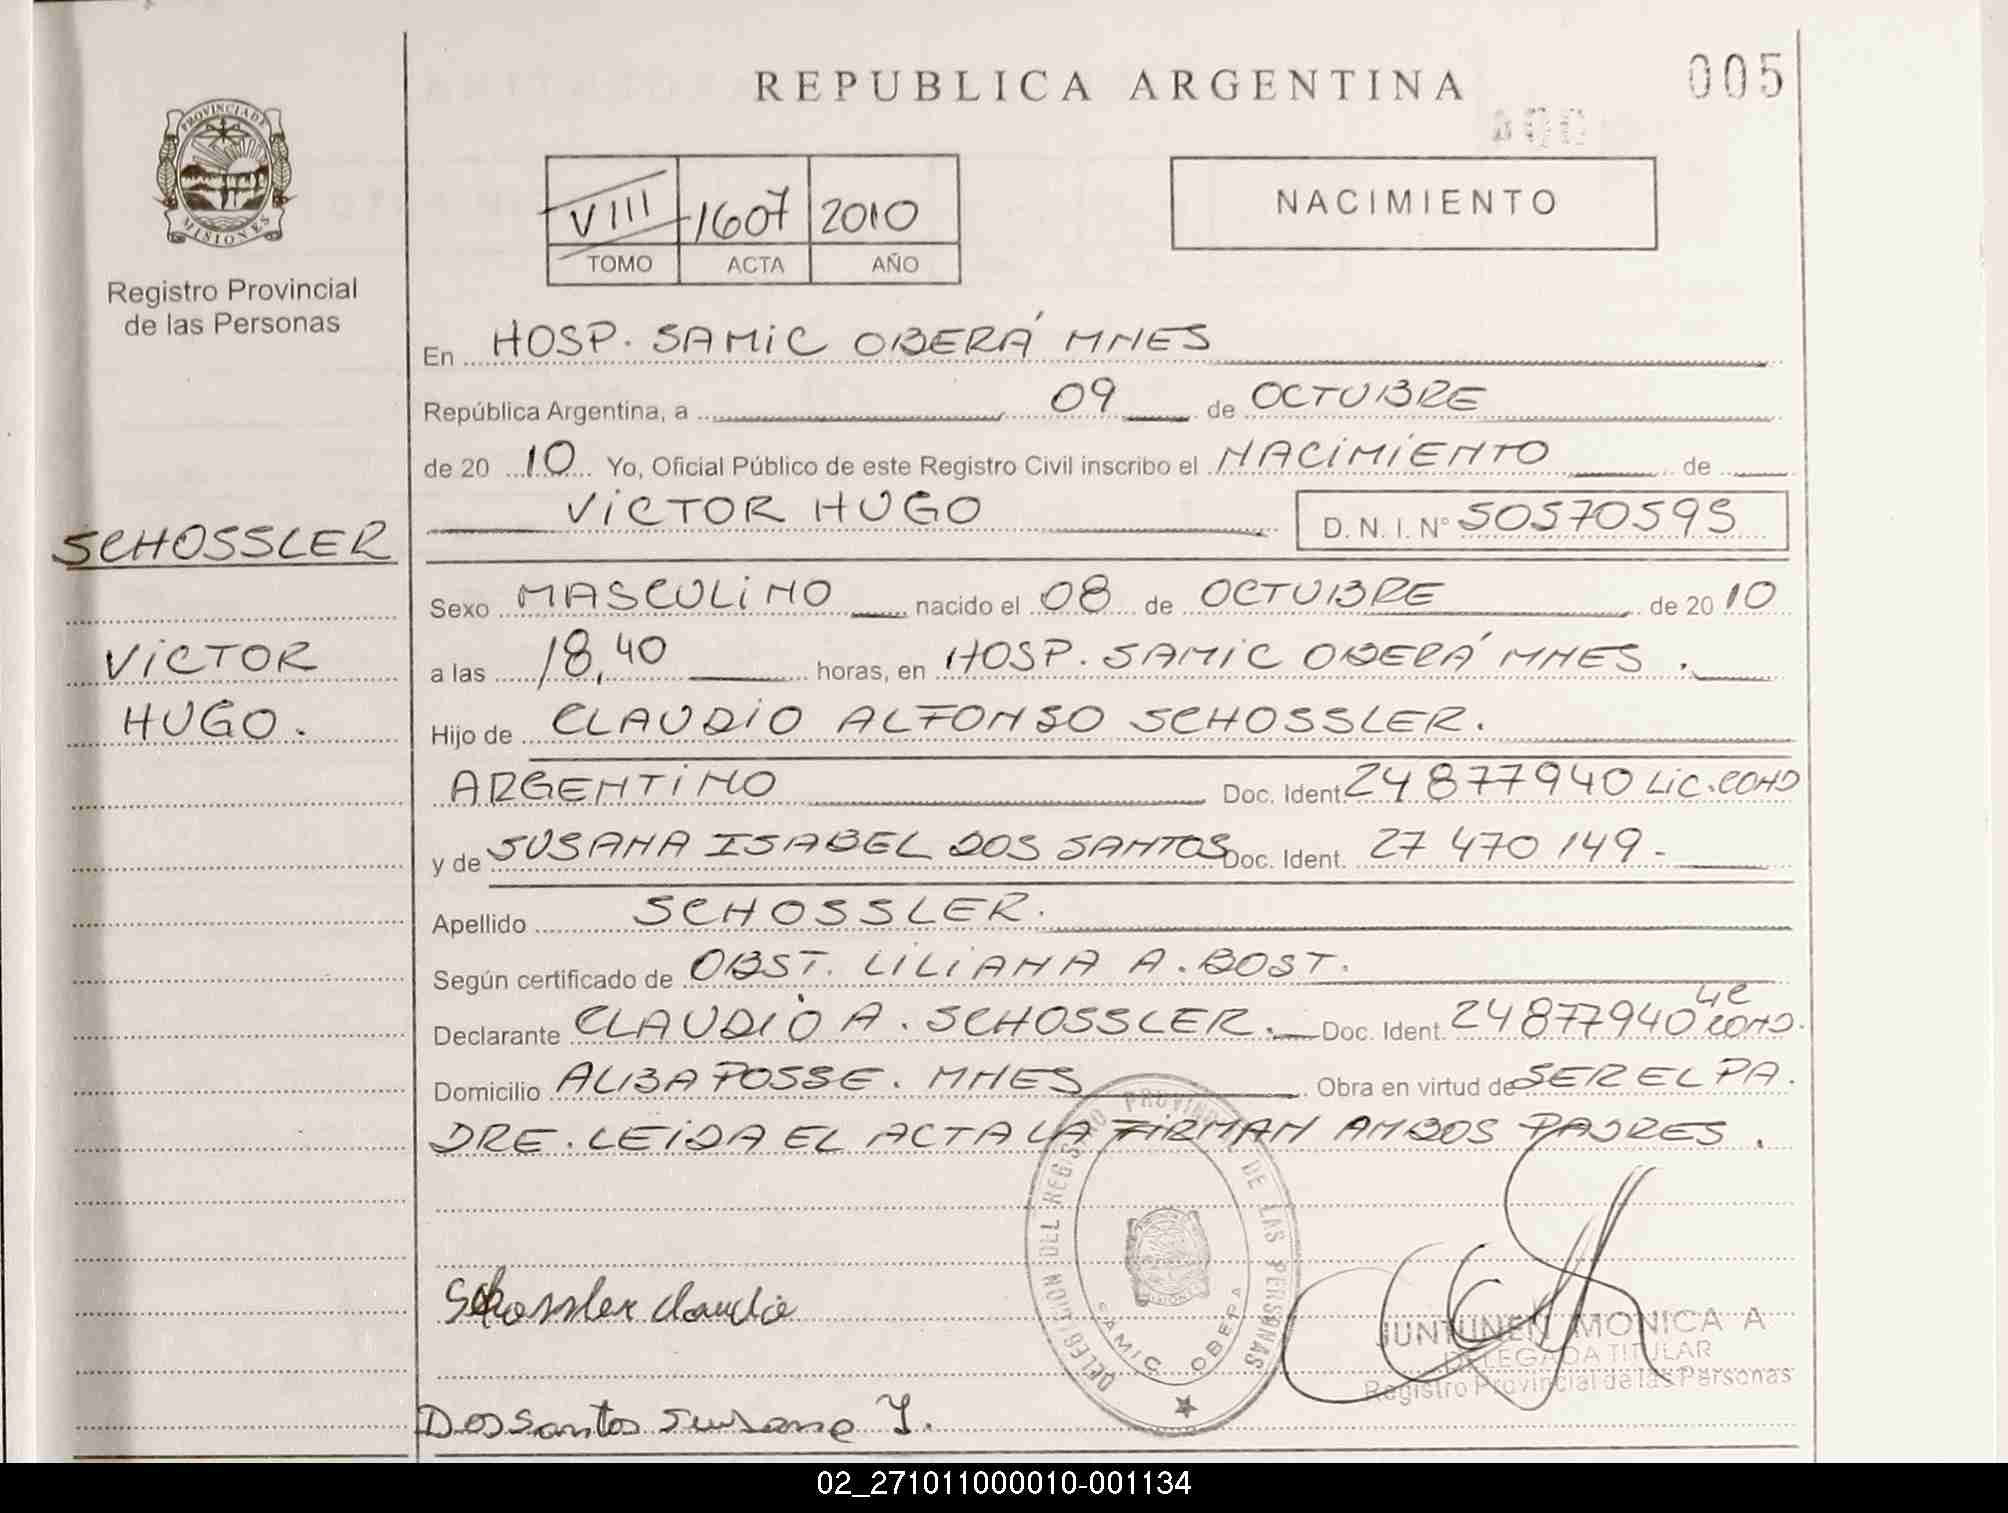 REPUBLICA ARGENTINA
005
PROVINCIA DE MISIONES
Registro Provincial
de las Personas
VIII 1607 2010
TOMO ACTA AÑO
NACIMIENTO
En HOSP. SAMIC OBERÁ MNES
República Argentina, a 09 de OCTUBRE
de 20 10 Yo, Oficial Público de este Registro Civil inscribo el NACIMIENTO de
VICTOR HUGO D. N. I. N° 50570595
SCHOSSLER
VICTOR
HUGO.
Sexo MASCULINO nacido el 08 de OCTUBRE de 20 10
a las 18,40 horas, en HOSP. SAMIC OBERÁ MNES.
Hijo de CLAUDIO ALFONSO SCHOSSLER.
ARGENTINO Doc. Ident. 24877940 Lic. COND
y de SUSANA ISABEL DOS SANTOS Doc. Ident. 27 470 149.-
Apellido SCHOSSLER.
Según certificado de OBST. LILIANA A. BOST.
Declarante CLAUDIO A. SCHOSSLER. Doc. Ident. 24877940 COND.
Domicilio ALBA POSSE. MNES Obra en virtud de SER EL PA.
DRE. LEIDA EL ACTA LA FIRMAN AMBOS PADRES.
DELEGACION DEL REGISTRO PROVINCIAL DE LAS PERSONAS
SAMIC OBERA
Schossler Claudio
JUNTUNEN MONICA A
DELEGADA TITULAR
Registro Provincial de las Personas
Dos Santos Susana I.
02_271011000010-001134